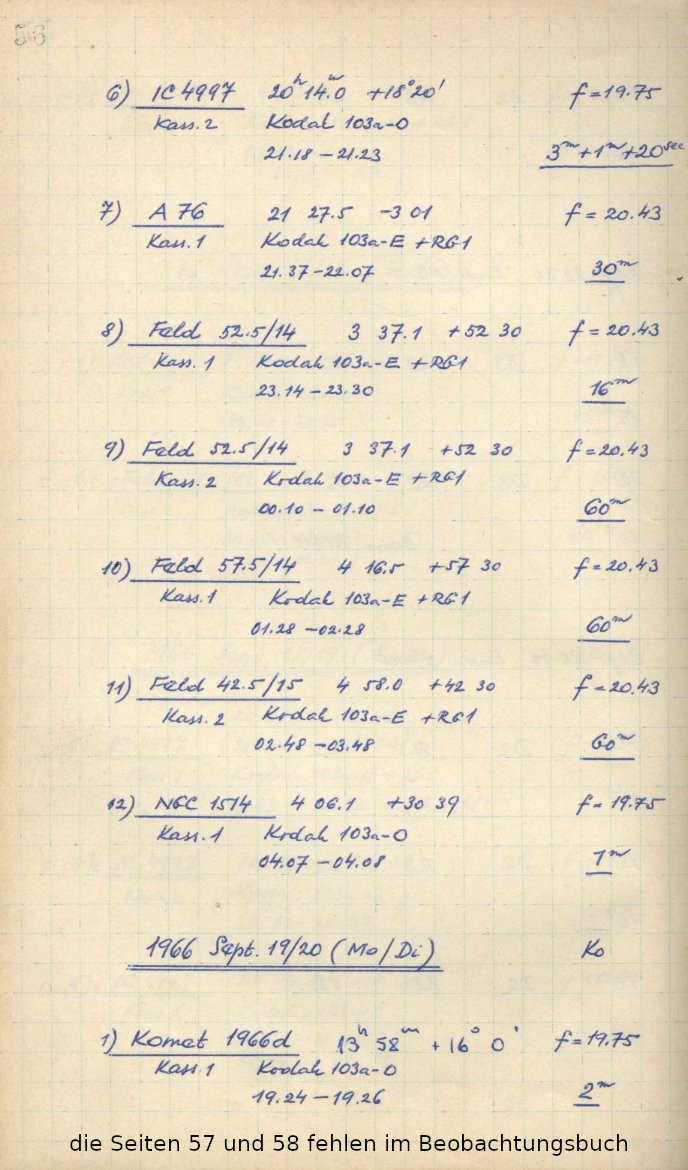 56
6) IC 4997 20ʰ 14ᵐ.0 +18°20' f = 19.75
Kass. 2 Kodak 103a-O
21.18 – 21.23 3ᵐ+1ᵐ+20ˢᵉᶜ
7) A 76 21 27.5 -3 01 f = 20.43
Kass. 1 Kodak 103a-E + RG1
21.37 – 22.07 30ᵐ
8) Feld 52.5/14 3 37.1 +52 30 f = 20.43
Kass. 1 Kodak 103a-E + RG1
23.14 – 23.30 16ᵐ
9) Feld 52.5/14 3 37.1 +52 30 f = 20.43
Kass. 2 Kodak 103a-E + RG1
00.10 – 01.10 60ᵐ
10) Feld 57.5/14 4 16.5 +57 30 f = 20.43
Kass. 1 Kodak 103a-E + RG1
01.28 – 02.28 60ᵐ
11) Feld 42.5/15 4 58.0 +42 30 f = 20.43
Kass. 2 Kodak 103a-E + RG1
02.48 – 03.48 60ᵐ
12) NGC 1514 4 06.1 +30 39 f = 19.75
Kass. 1 Kodak 103a-O
04.07 – 04.08 1ᵐ
1966 Sept. 19/20 (Mo/Di) Ko
1) Komet 1966d 13ʰ 58ᵐ +16° 0' f = 19.75
Kass. 1 Kodak 103a-O
19.24 – 19.26 2ᵐ
die Seiten 57 und 58 fehlen im Beobachtungsbuch